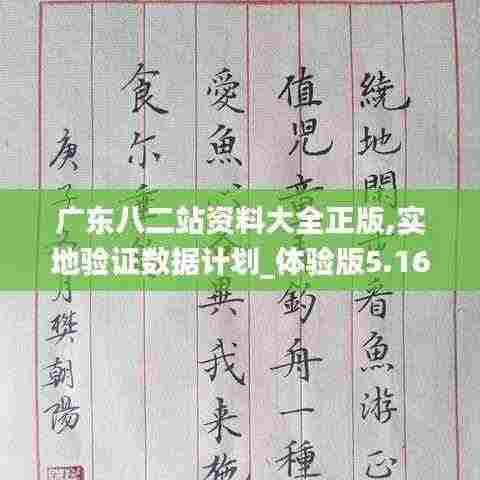 繞地閒看魚游正
值兒童釣舟一種
愛魚心異我來施
食尔垂
庚子月樊朝陽
广东八二站资料大全正版,实
地验证数据计划_体验版5.16